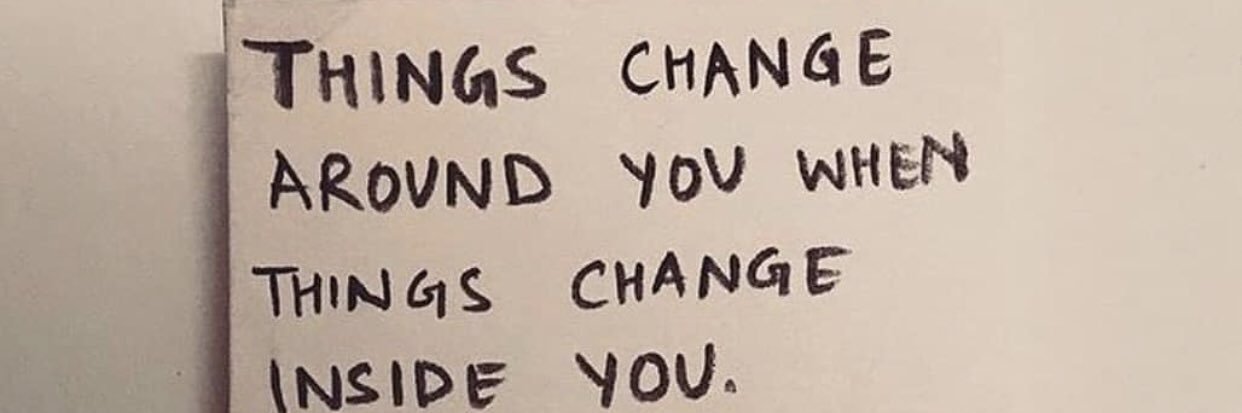 THINGS CHANGE
AROUND YOU WHEN
THINGS CHANGE
INSIDE YOU.